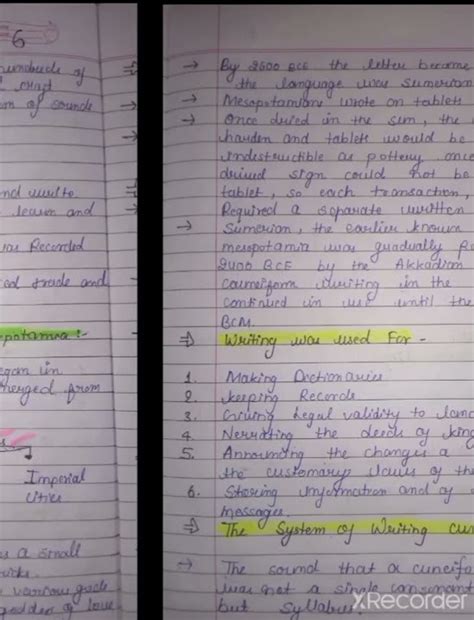 6
of
chart
of sounds
and write
learn and
was Recorded
trade and
potamia :-
egan in
merged from
Imperial
Cities
a small
various gods
goddess of love
→ By 2600 BCE the letter become
the language was Sumerian
→ Mesopotamians wrote on tablets
→ Once dried in the sun, the
harden and tablets would be
indestructible as pottery once
dried sign could not be
tablet, so each transaction,
Required a separate written
→ Sumerian, the earlier known
mesopotamia was gradually
2400 BCE by the Akkadian
writing in the
continued in use until the
BCM
⇒ Writing was used For -
1. Making Dictionaries
2. Keeping Records
3. Giving legal validity to land
4. Nerrating the deeds of king
5. Announcing the changes a
the customary laws of the
6. Storing information and of
messages.
⇒ The System of Writing cun
→ The sound that a cuneifo
was not a single consonant
but syllables
XRecorder